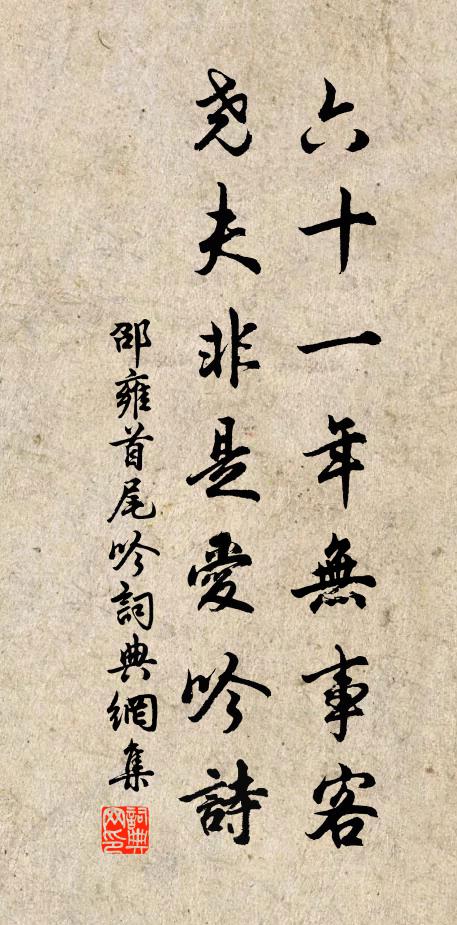 六十一年無事客
尧夫非是愛吟詩
邵雍首尾吟詞典網集
詞典网印